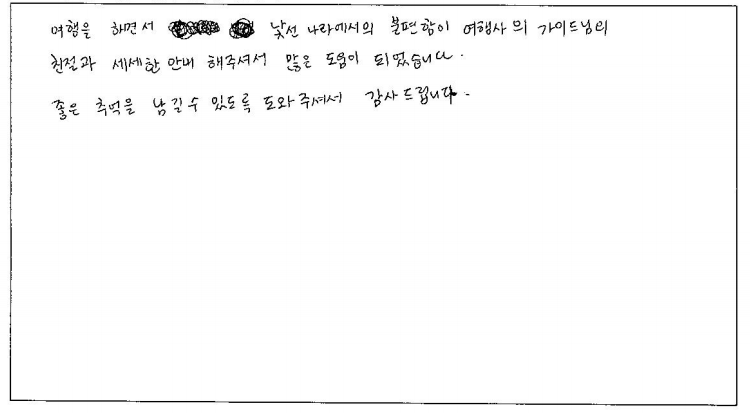 여행을 하면서 낯선 나라에서의 불편함이 여행사의 가이드님의
친절과 세세한 안내 해주셔서 많은 도움이 되었습니다.
좋은 추억을 남길 수 있도록 도와주셔서 감사드립니다.